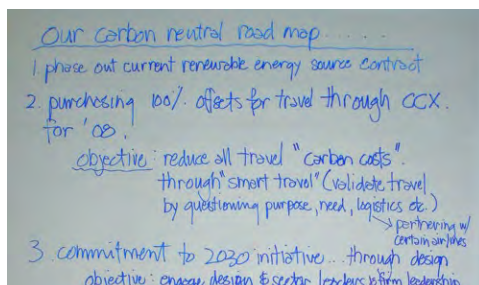 Our carbon neutral road map.....
1. phase out current renewable energy source contract
2. purchasing 100% offsets for travel through CCX.
for '08.
objective: reduce all travel "carbon costs".
through "smart travel" (validate travel
by questioning purpose, need, logistics etc.)
→ partnering w/
certain airlines
3. commitment to 2030 initiative... through design
objective: engage design & sector leaders & firm leadership